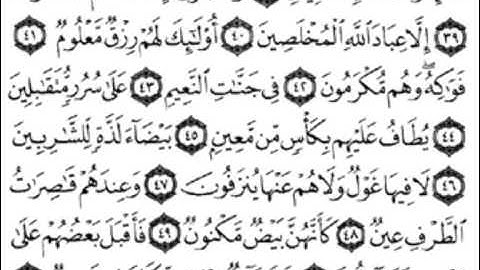 ٣٩ إِلَّا عِبَادَ ٱللَّهِ ٱلْمُخْلَصِينَ ٤٠ أُوْلَٰٓئِكَ لَهُمْ رِزْقٌ مَّعْلُومٌ ٤١
فَوَٰكِهُ وَهُم مُّكْرَمُونَ ٤٢ فِي جَنَّٰتِ ٱلنَّعِيمِ ٤٣ عَلَىٰ سُرُرٍ مُّتَقَٰبِلِينَ
٤٤ يُطَافُ عَلَيْهِم بِكَأْسٍ مِّن مَّعِينٍ ٤٥ بَيْضَآءَ لَذَّةٍ لِّلشَّٰرِبِينَ
٤٦ لَا فِيهَا غَوْلٌ وَلَا هُمْ عَنْهَا يُنزَفُونَ ٤٧ وَعِندَهُمْ قَٰصِرَٰتُ
ٱلطَّرْفِ عِينٌ ٤٨ كَأَنَّهُنَّ بَيْضٌ مَّكْنُونٌ ٤٩ فَأَقْبَلَ بَعْضُهُمْ عَلَىٰ